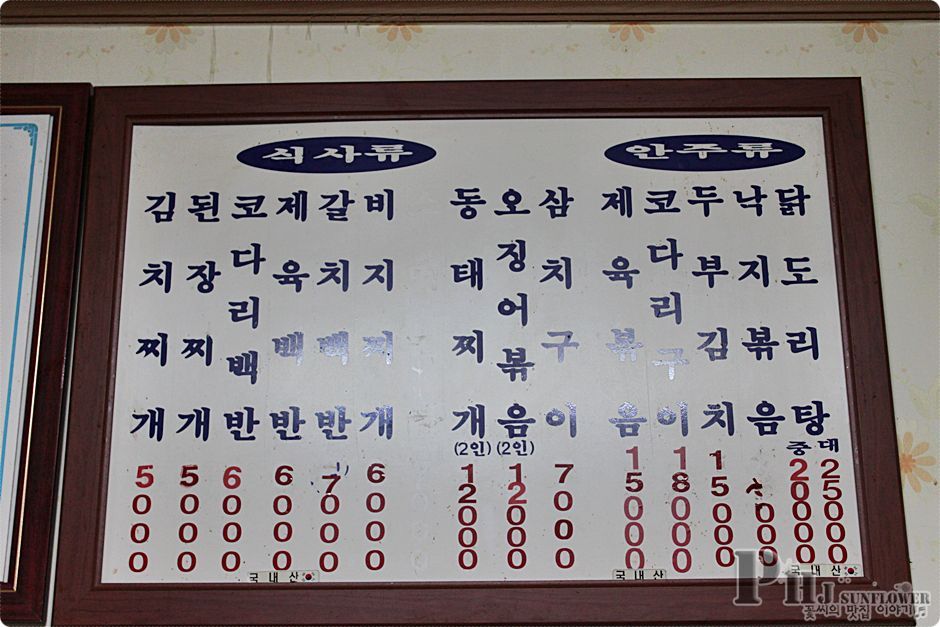 식사류
김치찌개 5000
된장찌개 5000
코다리백반 6000
제육백반 6000
갈치백반 7000
비지찌개 6000
동태찌개 (2인) 12000
오징어볶음 (2인) 12000
삼치구이 7000
안주류
제육볶음 15000
코다리구이 18000
두부김치 15000
낙지볶음
닭도리탕 중 20000 대 25000
국내산
국내산
국내산
PHJ SUNFLOWER
꽃씨의 맛집 이야기